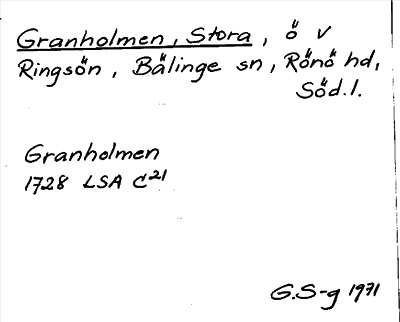 Granholmen, Stora, ö V
Ringsön, Bälinge sn, Rönö hd,
Söd.l.
Granholmen
1728 LSA C21
G.S-g 1971